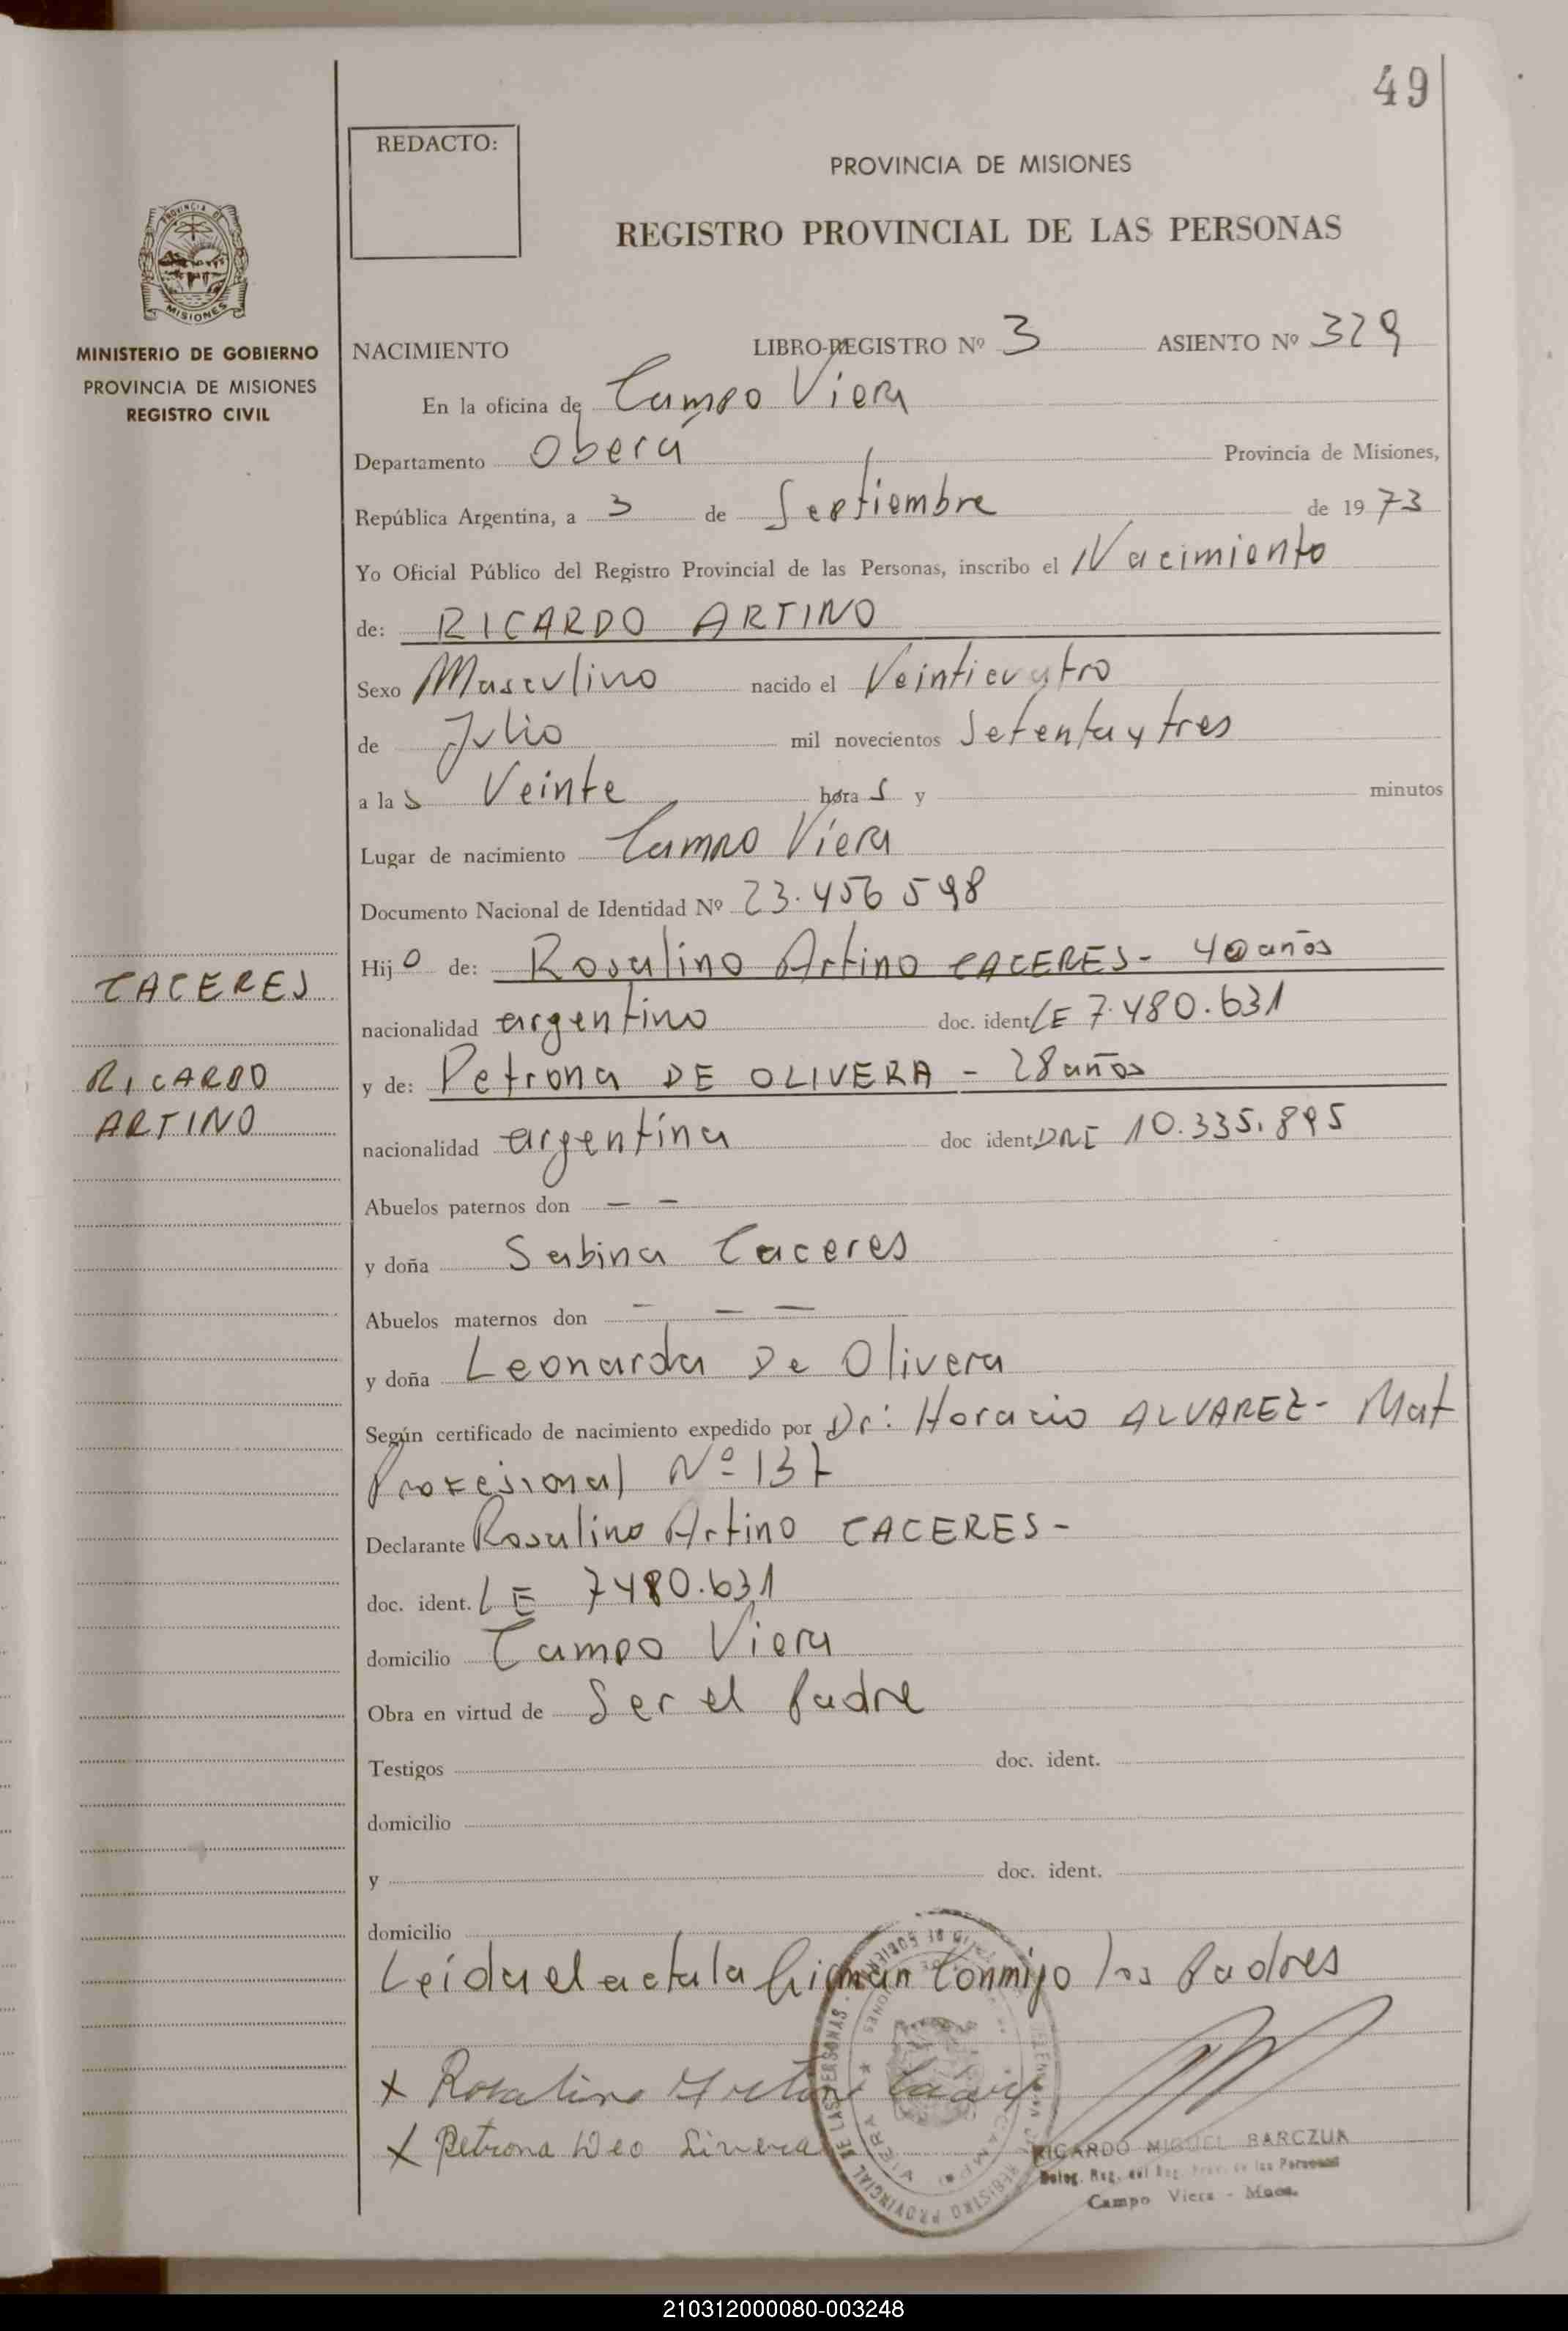 49
REDACTO:
PROVINCIA DE MISIONES
REGISTRO PROVINCIAL DE LAS PERSONAS
PROVINCIA DE
MISIONES
MINISTERIO DE GOBIERNO
PROVINCIA DE MISIONES
REGISTRO CIVIL
NACIMIENTO LIBRO-REGISTRO Nº 3 ASIENTO Nº 329
En la oficina de Campo Viera
Departamento Oberá Provincia de Misiones,
República Argentina, a 3 de Septiembre de 1973
Yo Oficial Público del Registro Provincial de las Personas, inscribo el Nacimiento
de: RICARDO ARTINO
Sexo Masculino nacido el Veinticuatro
de Julio mil novecientos Setenta y tres
a las Veinte horas y minutos
Lugar de nacimiento Campo Viera
Documento Nacional de Identidad Nº 23.456 598
Hijo de: Rosalino Artino CACERES - 40 años
CACERES
nacionalidad argentino doc. ident LE 7.480.631
RICARDO
y de: Petrona DE OLIVERA - 28 años
ARTINO
nacionalidad argentina doc ident DNI 10.335.895
Abuelos paternos don - -
y doña Sabina Caceres
Abuelos maternos don - - -
y doña Leonarda De Olivera
Según certificado de nacimiento expedido por Dr: Horacio ALVAREZ - Mat
Profesional Nº 137
Declarante Rosalino Artino CACERES -
doc. ident. LE 7480.631
domicilio Campo Viera
Obra en virtud de Ser el Padre
Testigos doc. ident.
domicilio
y doc. ident.
domicilio
Leida el acta la firman Conmigo los Padres
x Rosalino Artino
x Petrona Deo Livera
RICARDO MIGUEL BARCZUK
Deleg. Reg. del Reg. Prov. de las Personas
Campo Viera - Mnes.
REGISTRO PROVINCIAL DE LAS PERSONAS
CAMPO VIERA
210312000080-003248